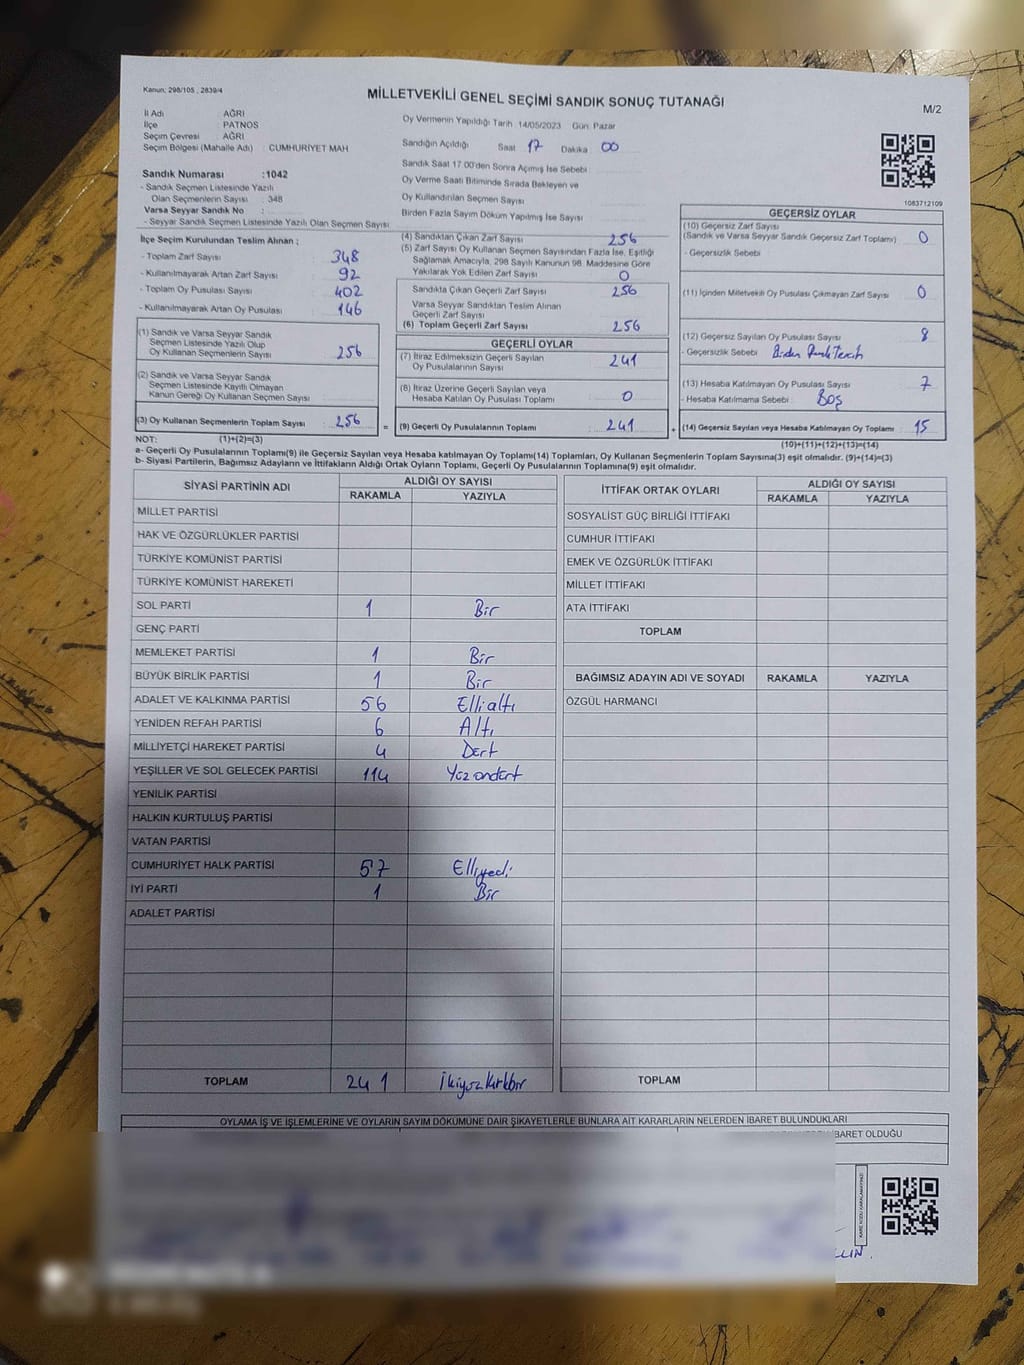 Kanun; 298/105 , 2839/4
MİLLETVEKİLİ GENEL SEÇİMİ SANDIK SONUÇ TUTANAĞI
M/2
İl Adı AĞRI
İlçe PATNOS
Seçim Çevresi : AĞRI
Seçim Bölgesi (Mahalle Adı) : CUMHURİYET MAH
Oy Vermenin Yapıldığı Tarih 14/05/2023 Gün: Pazar
Sandığın Açıldığı Saat 17 Dakika 00
Sandık Saat 17.00'den Sonra Açımış İse Sebebi :
Oy Verme Saati Bitiminde Sırada Bekleyen ve
Oy Kullandırılan Seçmen Sayısı
Birden Fazla Sayım Döküm Yapılmış İse Sayısı
Sandık Numarası :1042
- Sandık Seçmen Listesinde Yazılı
Olan Seçmenlerin Sayısı : 348
Varsa Seyyar Sandık No :
- Seyyar Sandık Seçmen Listesinde Yazılı Olan Seçmen Sayısı
1083712109
İlçe Seçim Kurulundan Teslim Alınan ;
- Toplam Zarf Sayısı 348
- Kullanılmayarak Artan Zarf Sayısı 92
- Toplam Oy Pusulası Sayısı 402
- Kullanılmayarak Artan Oy Pusulası 146
(1) Sandık ve Varsa Seyyar Sandık
Seçmen Listesinde Yazılı Olup
Oy Kullanan Seçmenlerin Sayısı 256
(2) Sandık ve Varsa Seyyar Sandık
Seçmen Listesinde Kayıtlı Olmayan
Kanun Gereği Oy Kullanan Seçmen Sayısı
(3) Oy Kullanan Seçmenlerin Toplam Sayısı 256 =
(4) Sandıktan Çıkan Zarf Sayısı 256
(5) Zarf Sayısı Oy Kullanan Seçmen Sayısından Fazla İse, Eşitliği
Sağlamak Amacıyla, 298 Sayılı Kanunun 98. Maddesine Göre
Yakılarak Yok Edilen Zarf Sayısı 0
Sandıkta Çıkan Geçerli Zarf Sayısı 256
Varsa Seyyar Sandıktan Teslim Alınan
Geçerli Zarf Sayısı
(6) Toplam Geçerli Zarf Sayısı 256
GEÇERLİ OYLAR
(7) İtiraz Edilmeksizin Geçerli Sayılan
Oy Pusulalarının Sayısı 241
(8) İtiraz Üzerine Geçerli Sayılan veya
Hesaba Katılan Oy Pusulası Toplamı 0
(9) Geçerli Oy Pusulalarının Toplamı 241 +
GEÇERSİZ OYLAR
(10) Geçersiz Zarf Sayısı
(Sandık ve Varsa Seyyar Sandık Geçersiz Zarf Toplamı) 0
- Geçersizlik Sebebi
(11) İçinden Milletvekili Oy Pusulası Çıkmayan Zarf Sayısı 0
(12) Geçersiz Sayılan Oy Pusulası Sayısı 8
- Geçersizlik Sebebi Birden
(13) Hesaba Katılmayan Oy Pusulası Sayısı 7
- Hesaba Katılmama Sebebi : Boş
(14) Geçersiz Sayılan veya Hesaba Katılmayan Oy Toplamı 15
NOT: (1)+(2)=(3)
(10)+(11)+(12)+(13)=(14)
a- Geçerli Oy Pusulalarının Toplamı(9) ile Geçersiz Sayılan veya Hesaba katılmayan oy Toplamı(14) Toplamları, Oy Kullanan Seçmenlerin Toplam Sayısına(3) eşit olmalıdır. (9)+(14)=(3)
b- Siyasi Partilerin, Bağımsız Adayların ve İttifakların Aldığı Ortak Oyların Toplamı, Geçerli Oy Pusulalarının Toplamına(9) eşit olmalıdır.
SİYASİ PARTİNİN ADI ALDIĞI OY SAYISI
RAKAMLA YAZIYLA
MİLLET PARTİSİ
HAK VE ÖZGÜRLÜKLER PARTİSİ
TÜRKİYE KOMÜNİST PARTİSİ
TÜRKİYE KOMÜNİST HAREKETİ
SOL PARTİ 1 Bir
GENÇ PARTİ
MEMLEKET PARTİSİ 1 Bir
BÜYÜK BİRLİK PARTİSİ 1 Bir
ADALET VE KALKINMA PARTİSİ 56 Ellialtı
YENİDEN REFAH PARTİSİ 6 Altı
MİLLİYETÇİ HAREKET PARTİSİ 4 Dört
YEŞİLLER VE SOL GELECEK PARTİSİ 114 Yüzondört
YENİLİK PARTİSİ
HALKIN KURTULUŞ PARTİSİ
VATAN PARTİSİ
CUMHURİYET HALK PARTİSİ 57 Elliyedi
İYİ PARTİ 1 Bir
ADALET PARTİSİ
TOPLAM 241 İkiyüzkırkbir
İTTİFAK ORTAK OYLARI ALDIĞI OY SAYISI
RAKAMLA YAZIYLA
SOSYALİST GÜÇ BİRLİĞİ İTTİFAKI
CUMHUR İTTİFAKI
EMEK VE ÖZGÜRLÜK İTTİFAKI
MİLLET İTTİFAKI
ATA İTTİFAKI
TOPLAM
BAĞIMSIZ ADAYIN ADI VE SOYADI RAKAMLA YAZIYLA
ÖZGÜL HARMANCI
TOPLAM
OYLAMA İŞ VE İŞLEMLERİNE VE OYLARIN SAYIM DÖKÜMÜNE DAİR ŞİKAYETLERLE BUNLARA AİT KARARLARIN NELERDEN İBARET BULUNDUKLARI
İBARET OLDUĞU
KARE KODU KARALAMAYINIZ!